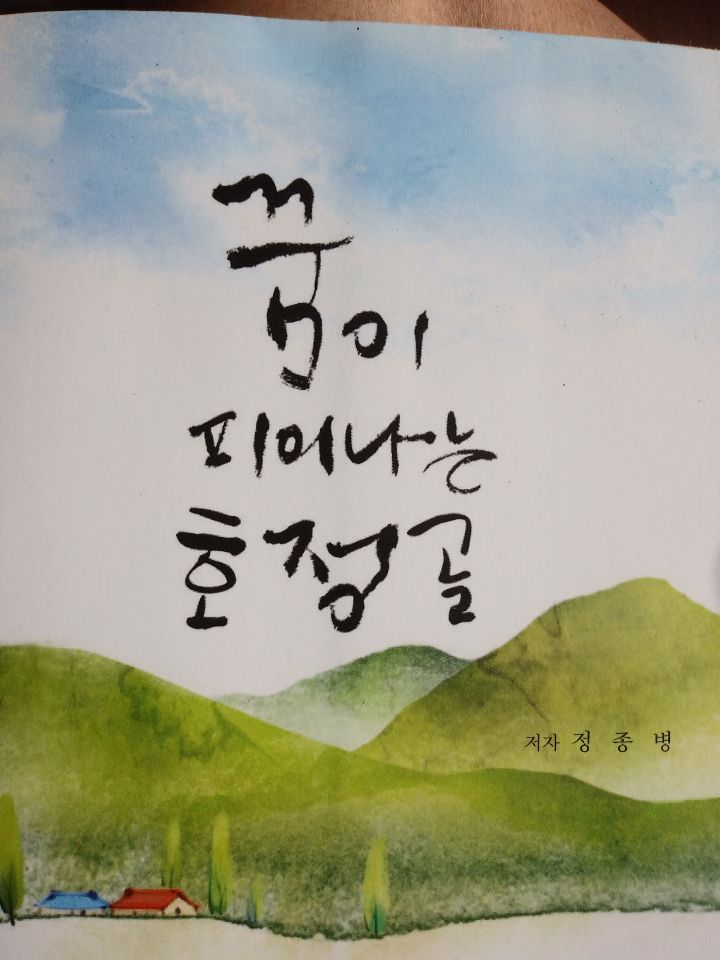 꿈이
피어나는
호정골
저자 정종병